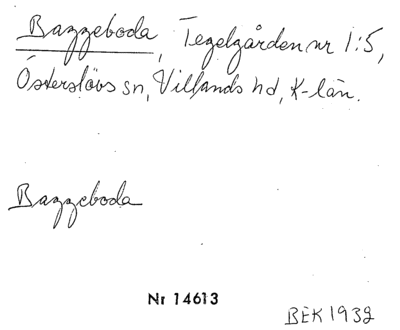 Baggeboda, Tegelgården nr 1:5,
Österslövs sn, Villands hd, K-län.
Baggeboda
Nr 14613
BEK 1932